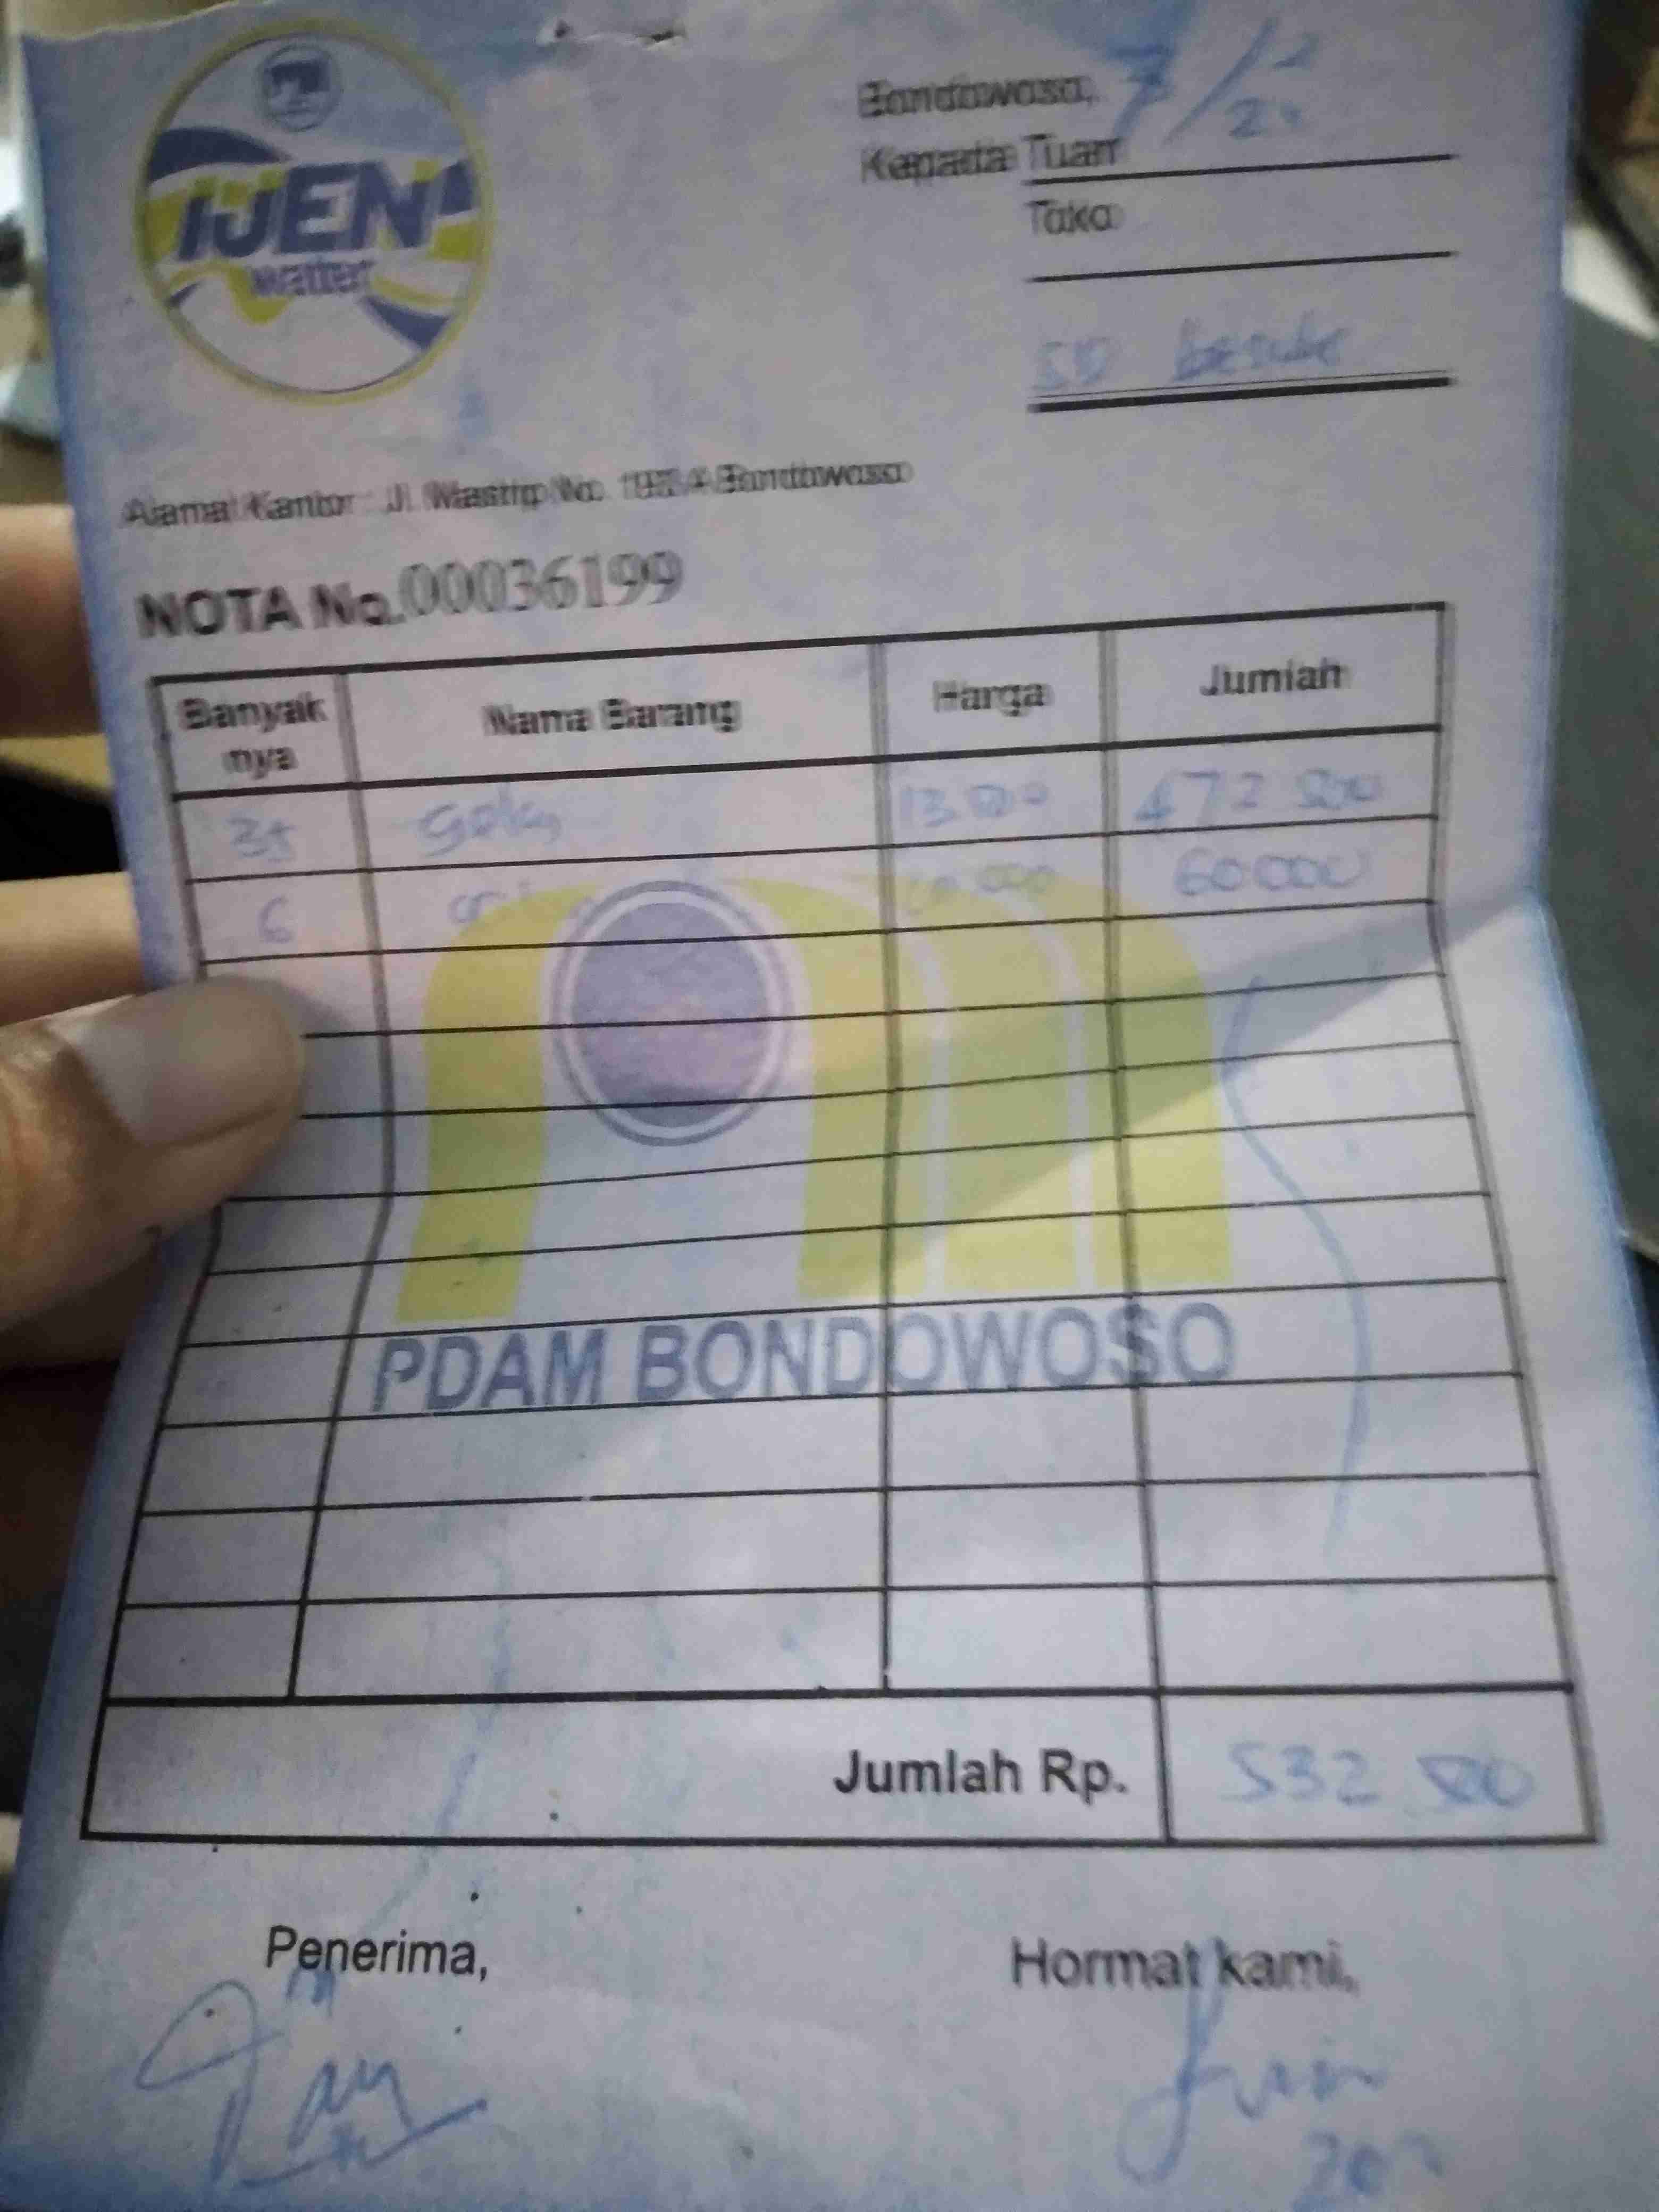 IJEN
water
Bondowoso, 7/2
Kepada Tuan
Toko
SD besuk
Alamat Kantor : Jl. Mastrip No. Bondowoso
NOTA No. 00036199
Banyak nya Nama Barang Harga Jumlah
35 Galon 13.500 472 500
6 60 000
PDAM BONDOWOSO
Jumlah Rp. 532 500
Penerima, Hormat kami,